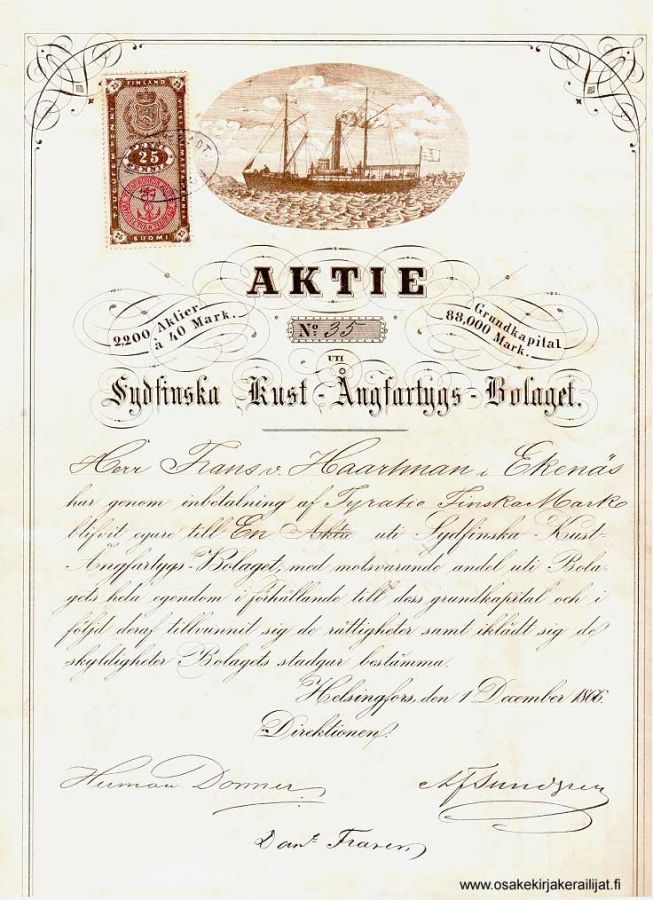 FINLAND
25
PENNIÄ
SUOMI
AKTIE
2,200 Aktier
à 40 Mark.
Nº 35
Grundkapital
88,000 Mark.
UTI
Sydfinska Kust-Ångfartygs-Bolaget.
Herr Frans v. Haartman i Ekenäs
har genom inbetalning af Fyratio Finska Mark
blifvit egare till En Aktie uti Sydfinska Kust-
Ångfartygs-Bolaget, med motsvarande andel uti Bola-
gets hela egendom i förhållande till dess grundkapital och i
följd deraf tillvunnit sig de rättigheter samt iklädt sig de
skyldigheter Bolagets stadgar bestämma.
Helsingfors, den 1 December 1866.
Direktionen:
Herman Donner
AF Sundgren
www.osakekirjakerailijat.fi